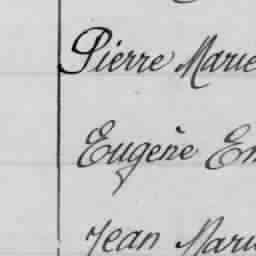 Pierre Marie
Eugène Em
Jean Marie